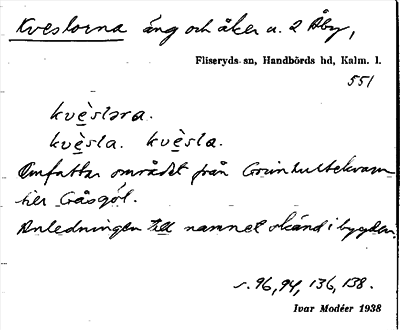 Kveslorna äng och åker u. 2 Åby,
Fliseryds sn, Handbörds hd, Kalm. l.
551
kvèsləra.
kvèsla. kvèsla.
Omfattar området från
till Gåsgöl.
Anledningen till namnet okänd i bygden.
s. 96, 94, 136, 138.
Ivar Modéer 1938